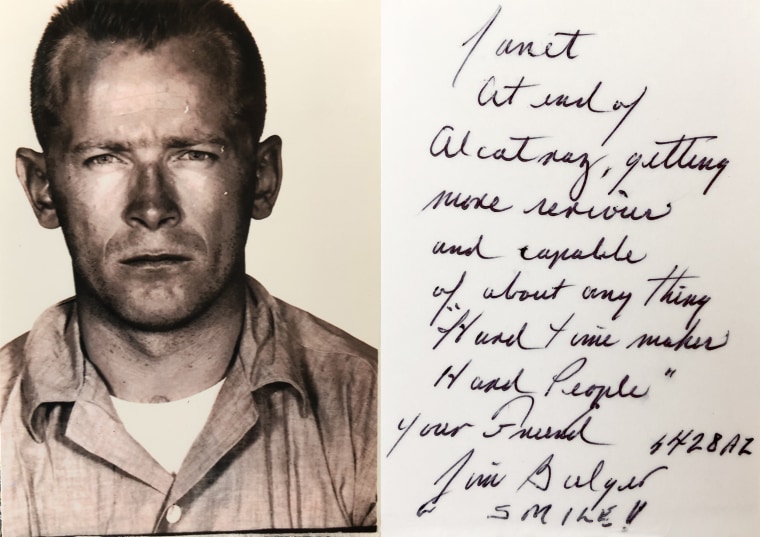 Janet
At end of
Alcatraz, getting
more serious
and capable
of about any thing
"Hard time makes
Hard People"
your Friend
Jim Bulger 1428AZ
SMILE!!